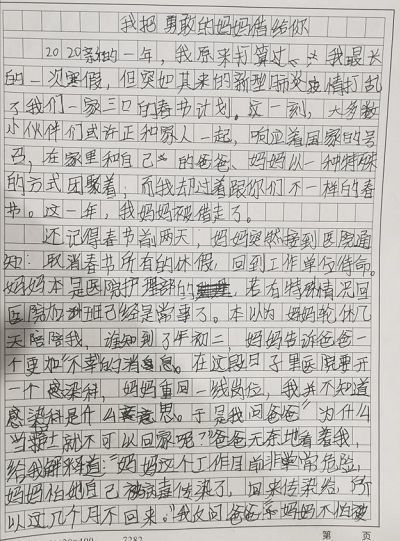 我把勇敢的妈妈借给你
2020年的一年，我原来打算过 我最长
的一次寒假，但突如其来的新型肺炎疫情打乱
了我们一家三口的春节计划。这一刻，大多数
小伙伴们或许正和家人一起，响应着国家的号
召，在家里和自己的爸爸、妈妈以一种特殊
的方式团聚着；而我却过着跟你们不一样的春
节。这一年，我妈妈被借走了。
还记得春节前两天，妈妈突然接到医院通
知：取消春节所有的休假，回到工作单位待命。
妈妈本是医院护理部的 若有特殊情况回
医院加班已经是常事了。本以为妈妈轮休几
天陪陪我，谁知到了年初二，妈妈告诉爸爸一
个更加"不幸的消息。在这段日子里医院要开
一个感染科，妈妈重回一线岗位，我并不知道
感染科是什么意思。于是我问爸爸"为什么
当护士就不可以回家呢？"爸爸无奈地看着我，
给我解释道："妈妈这个工作目前非常危险，
妈妈怕她自己被病毒传染了，回来传染给，所
以这几个月不回来。"我反问爸爸 妈妈不怕被
第 页